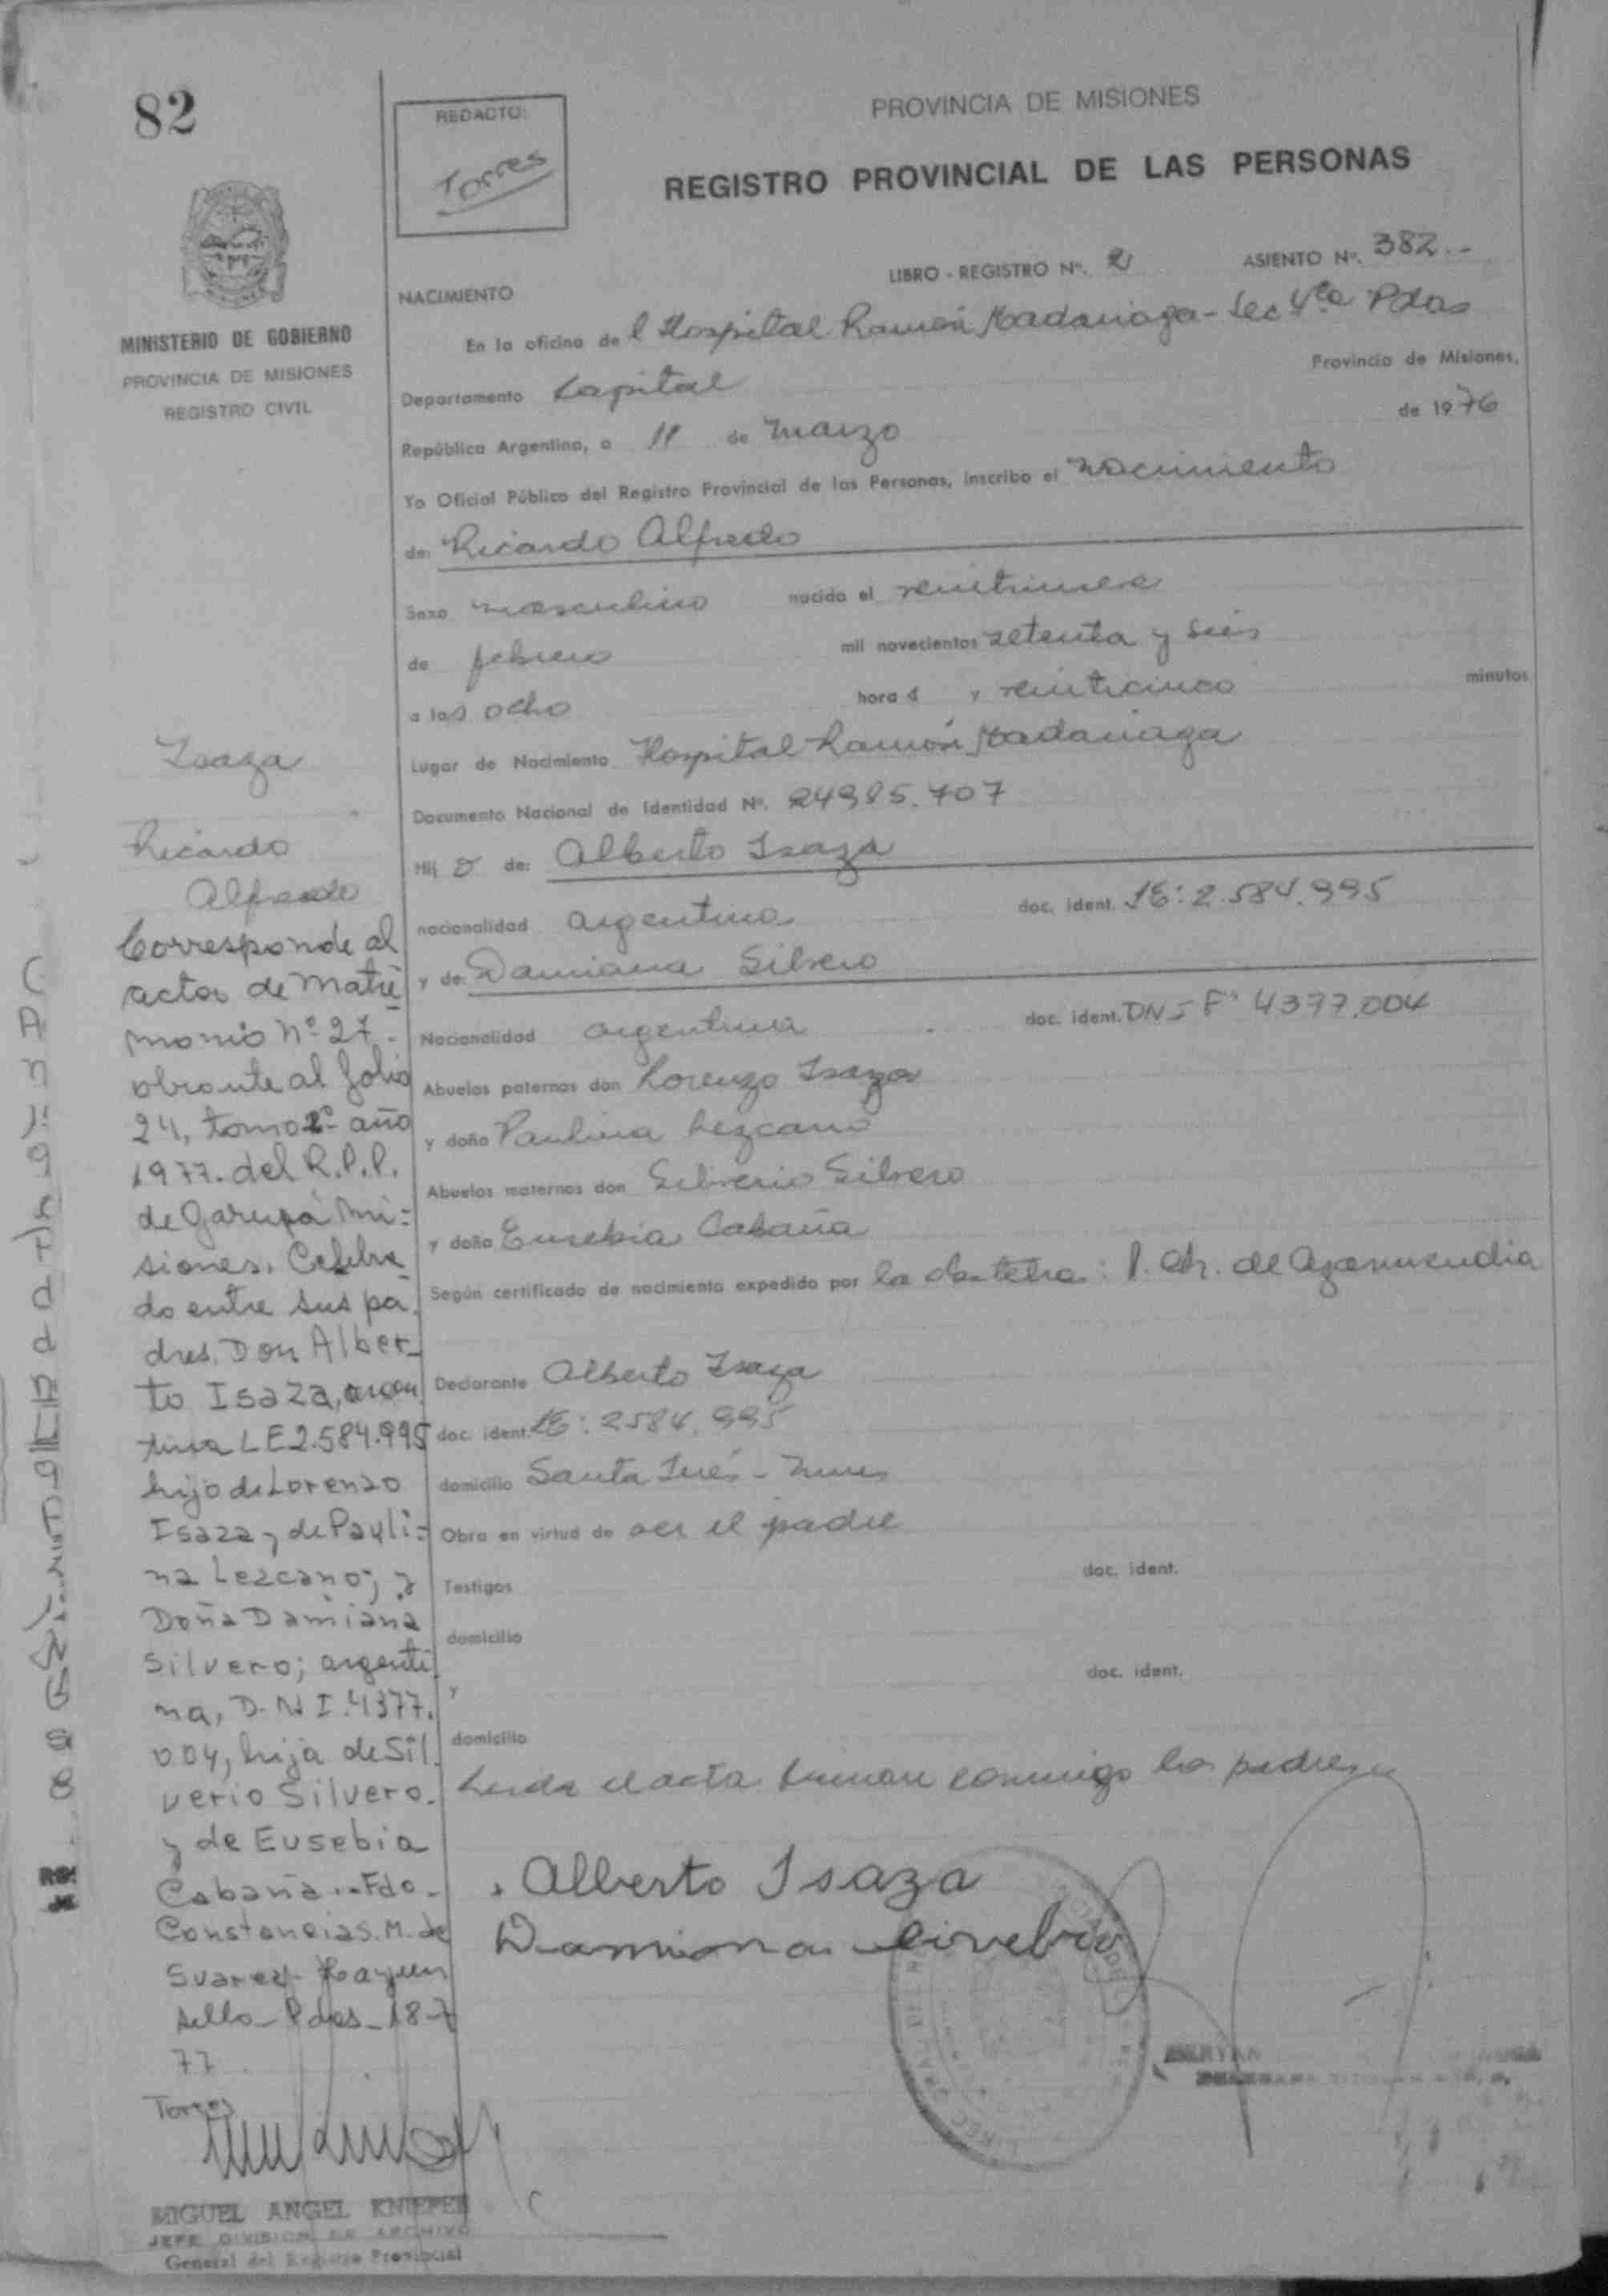 82
REDACTO:
Torres
PROVINCIA DE MISIONES
REGISTRO PROVINCIAL DE LAS PERSONAS
LIBRO - REGISTRO Nº. 2 ASIENTO Nº. 382.-
NACIMIENTO
MINISTERIO DE GOBIERNO
PROVINCIA DE MISIONES
REGISTRO CIVIL
En la oficina de l Hospital Ramón Madariaga - Sec 4ta Pdas
Departamento Capital Provincia de Misiones,
República Argentina, a 11 de marzo de 1976
Yo Oficial Público del Registro Provincial de las Personas, inscribo el nacimiento
de: Ricardo Alfredo
Sexo masculino nacido el
de febrero mil novecientos setenta y seis
a las ocho hora s y veinticinco minutos
Lugar de Nacimiento Hospital Ramón Madariaga
Documento Nacional de Identidad Nº. 24985.707
Hij o de: Alberto Isaza
nacionalidad argentina doc. ident. LE: 2.584.995
y de: Damiana Silvero
Nacionalidad argentina doc. ident. DNI F 4377.004
Abuelos paternos don Lorenzo Isaza
y doña Paulina Lezcano
Abuelos maternos don Silverio Silvero
y doña Eusebia Cabaña
Según certificado de nacimiento expedido por la obstetra:
Declarante Alberto Isaza
doc. ident. LE: 2584.995
domicilio Santa Inés -
Obra en virtud de ser el padre
Testigos doc. ident.
domicilio
y doc. ident.
domicilio
Leida el acta firman conmigo los padres
Alberto Isaza
Damiana
Isaza
Ricardo
Alfredo
Corresponde al
acta de Matri-
monio Nº 27-
obrante al folio
24, tomo 2º año
1977. del R.P.P.
de Garupá Mi-
siones. Celebra-
do entre sus pa-
dres, Don Alber-
to Isaza, argen
tina LE 2.584.995
hijo de Lorenzo
Isaza y de Pauli-
na Lezcano; y
Doña Damiana
Silvero; argenti
na, D.N I. 4377.
004, hija de Sil
verio Silvero.
y de Eusebia
Cabaña.. Fdo.
Constancias. M. de
Suarez- Hay un
sello- Pdas- 18-7
77
Torres
MIGUEL ANGEL KNIEPER
JEFE DIVISION DE ARCHIVO
General del Registro Provincial